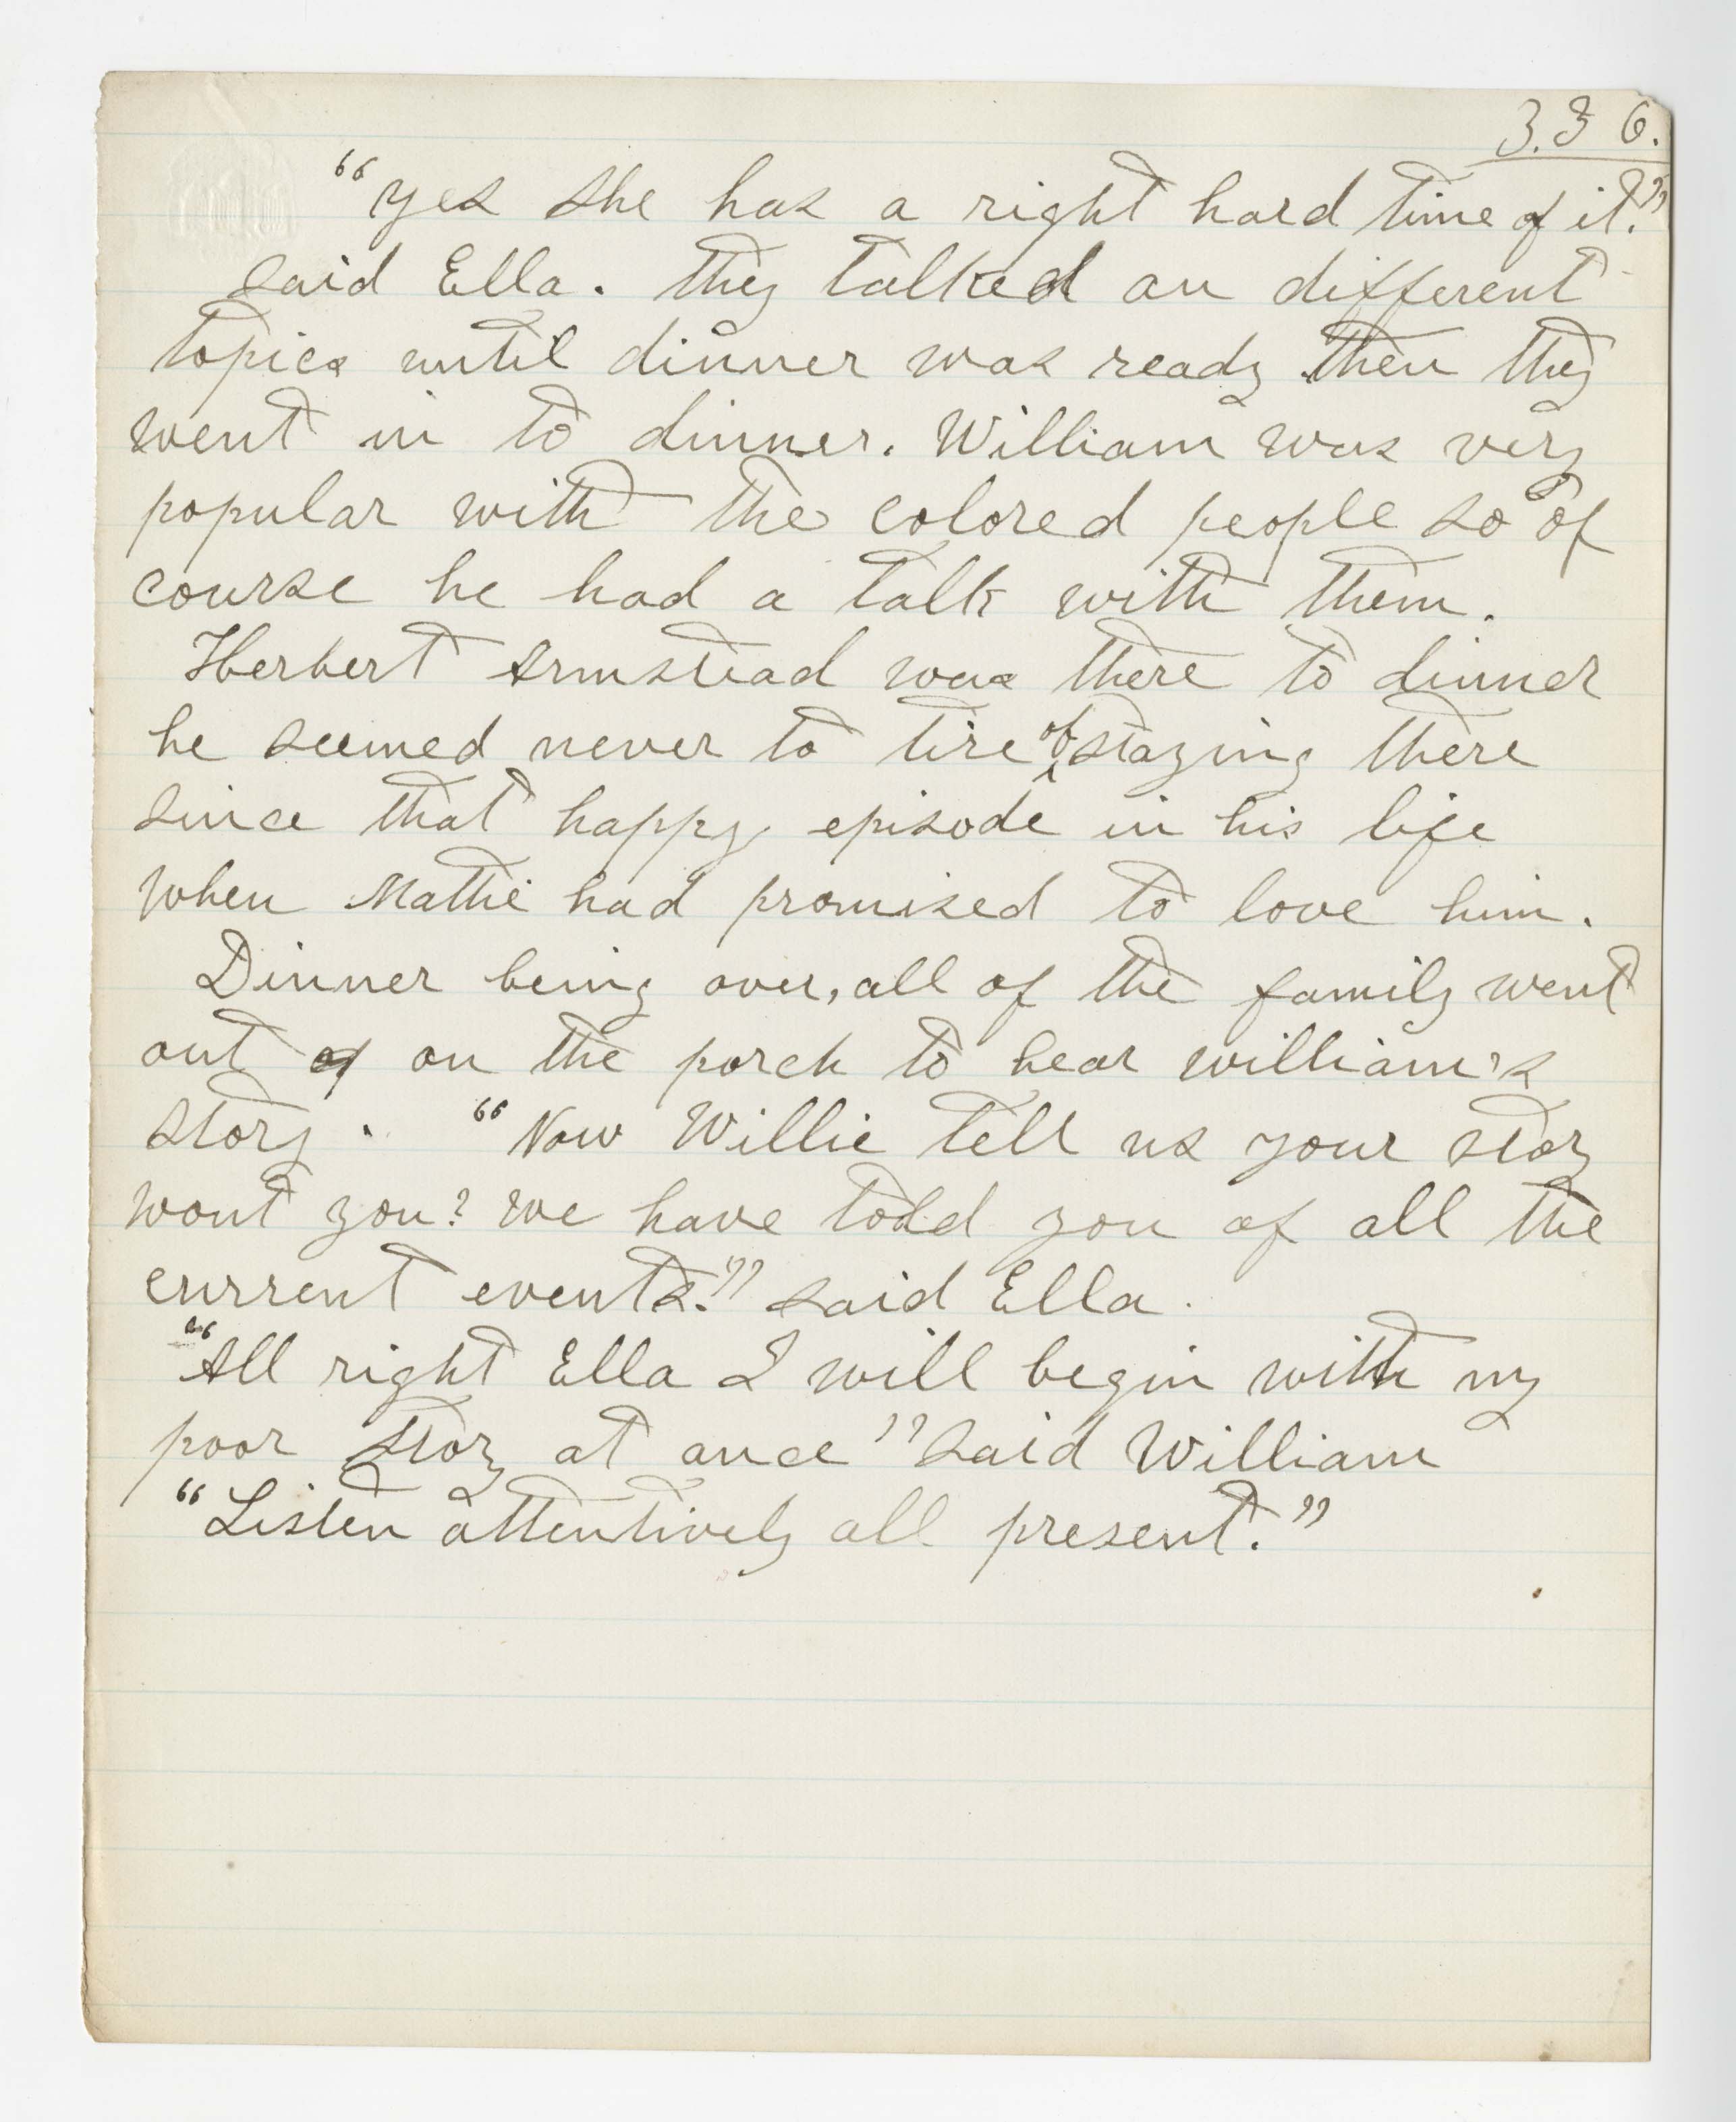 3.3 6.
"Yes she has a right hard time of it."
said Ella. They talked on different
topics until dinner was ready then they
went in to dinner. William was very
popular with the colored people so of
course he had a talk with them.
Herbert Armstead was there to dinner
he seemed never to tire of staying there
since that happy episode in his life
when Mattie had promised to love him.
Dinner being over, all of the family went
out of on the porch to hear william's
story. "Now Willie tell us your story
wont you? we have told you of all the
current events." said Ella.
"All right Ella I will begin with my
poor story at once" said William
"Listen attentively all present."